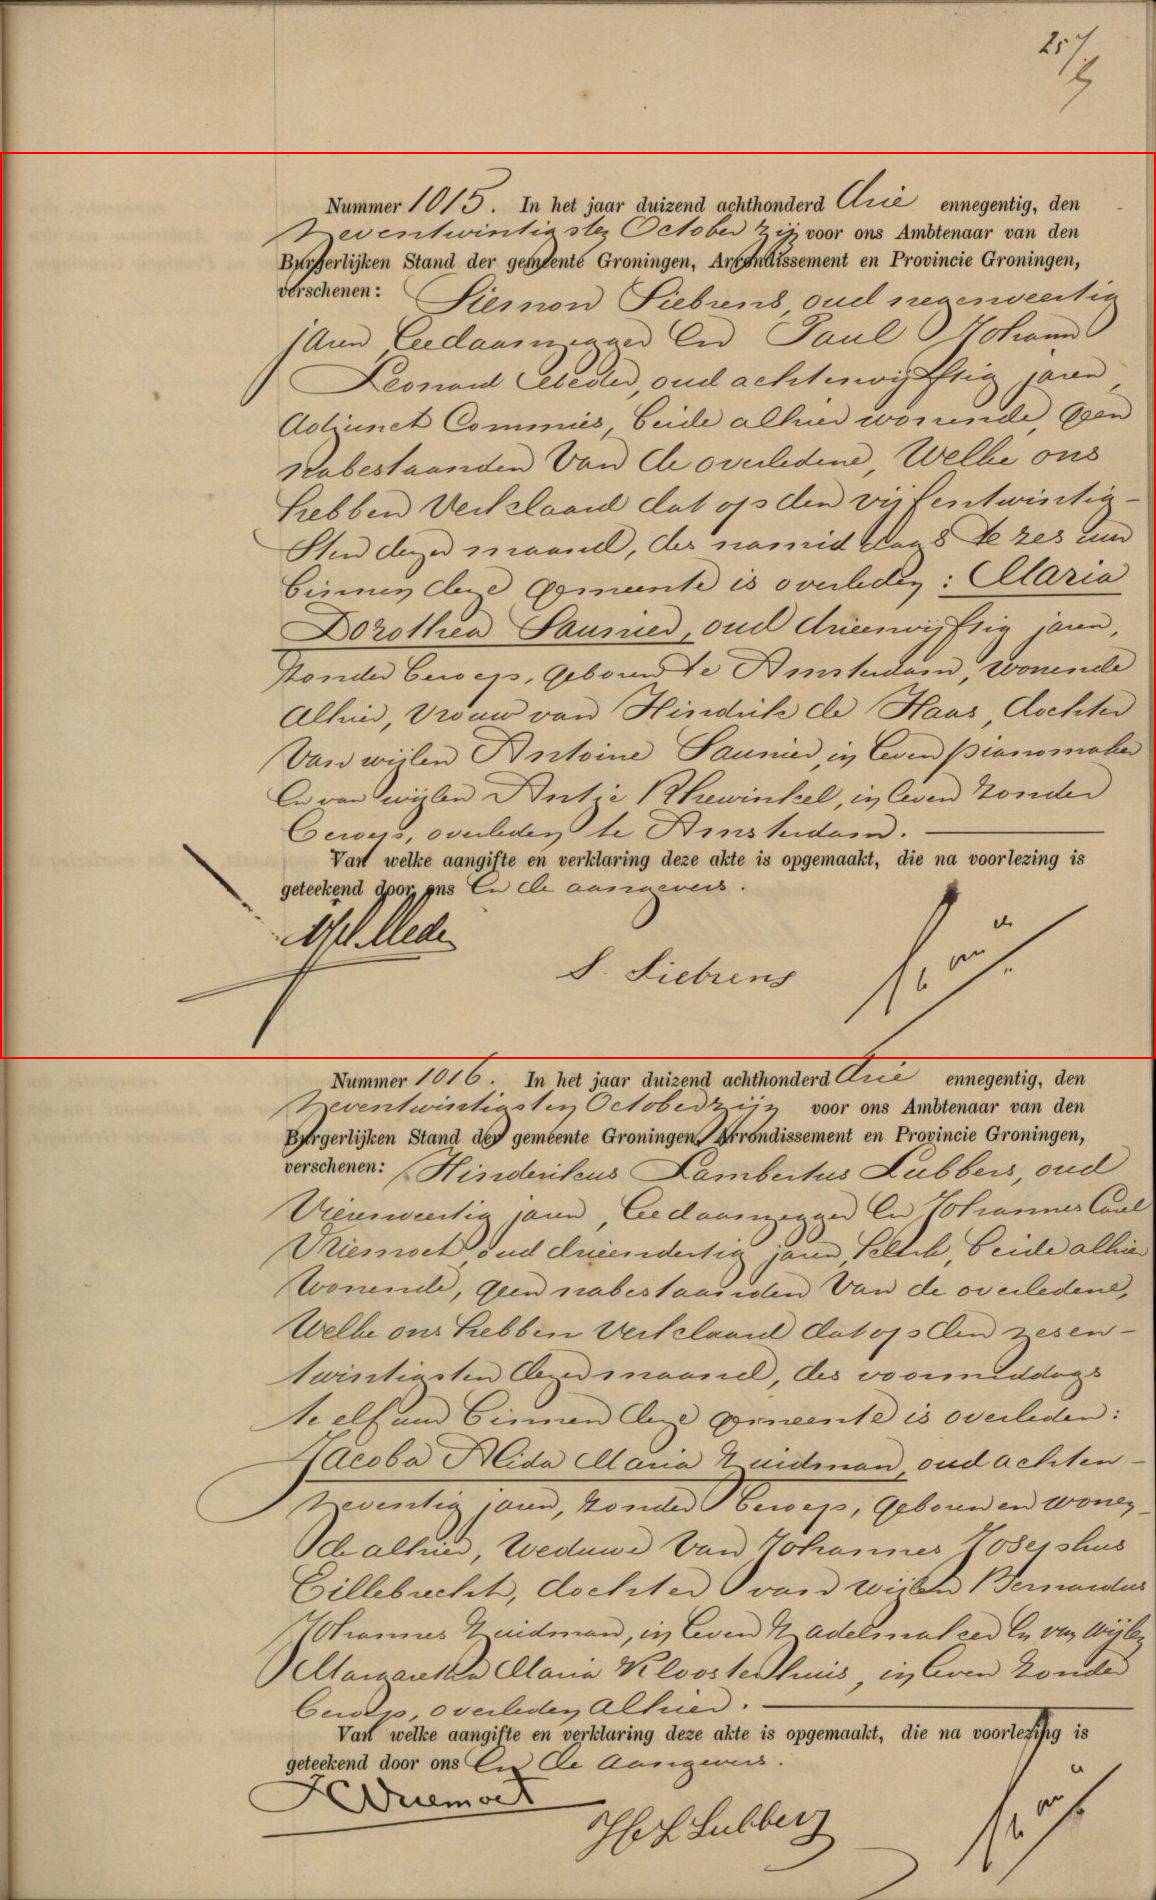 257
Nummer 1015. In het jaar duizend achthonderd drie ennegentig, den
zeventwintigsten October zijn voor ons Ambtenaar van den
Burgerlijken Stand der gemeente Groningen, Arrondissement en Provincie Groningen,
verschenen: Siemon Siebrens, oud negenveertig
jaren, Leedaanzegger en Paul Johann
Leonard Meder, oud achtenvijftig jaren,
Adjunct Commies, beide alhier wonende, geen
nabestaanden van de overledene, Welke ons
hebben verklaard dat op den vijfentwintig-
sten dezer maand, des namiddags te zes uur
binnen deze gemeente is overleden: Maria
Dorothea Saunier, oud drieenvijftig jaren,
zonder beroep, geboren te Amsterdam, wonende
alhier, vrouw van Hindrik de Haas, dochter
van wijlen Antoine Saunier, in leven pianomaker
en van wijlen Antje Rhewinkel, in leven zonder
beroep, overleden te Amsterdam.
Van welke aangifte en verklaring deze akte is opgemaakt, die na voorlezing is
geteekend door ons en de aangevers.
Meder
S. Siebrens
Nummer 1016. In het jaar duizend achthonderd drie ennegentig, den
zeventwintigsten October zijn voor ons Ambtenaar van den
Burgerlijken Stand der gemeente Groningen, Arrondissement en Provincie Groningen,
verschenen: Hinderikus Lambertus Lubbers, oud
vierenveertig jaren, Leedaanzegger en Johannes Carel
Vriemoet, oud drieendertig jaren, klerk, beide alhier
wonende, geen nabestaanden van de overledene,
Welke ons hebben verklaard dat op den zesen-
twintigsten dezer maand, des voormiddags
te elf uur binnen deze gemeente is overleden:
Jacoba Alida Maria Zuidman, oud achten-
zeventig jaren, zonder beroep, geboren en wonen-
de alhier, weduwe van Johannes Josephus
Eillebrecht, dochter van wijlen Bernardus
Johannes Zuidman, in leven Zadelmaker en van wijlen
Margaretha Maria Kloosterhuis, in leven zonder
beroep, overleden alhier.
Van welke aangifte en verklaring deze akte is opgemaakt, die na voorlezing is
geteekend door ons en de aangevers.
JCVriemoet
H L Lubbers